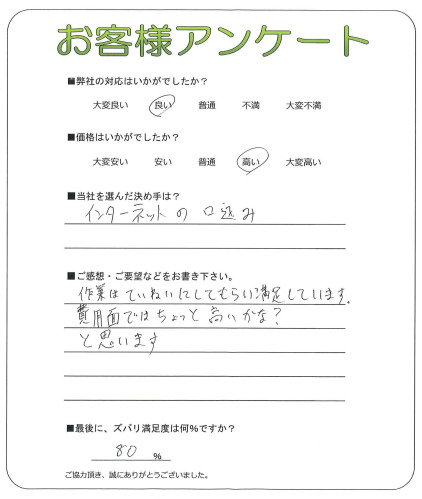 お客様アンケート
■弊社の対応はいかがでしたか？
大変良い 良い 普通 不満 大変不満
■価格はいかがでしたか？
大変安い 安い 普通 高い 大変高い
■当社を選んだ決め手は？
インターネットの口込み
■ご感想・ご要望などをお書き下さい。
作業はていねいにしてもらい満足しています。
費用面ではちょっと高いかな？
と思います
■最後に、ズバリ満足度は何%ですか？
80 %
ご協力頂き、誠にありがとうございました。